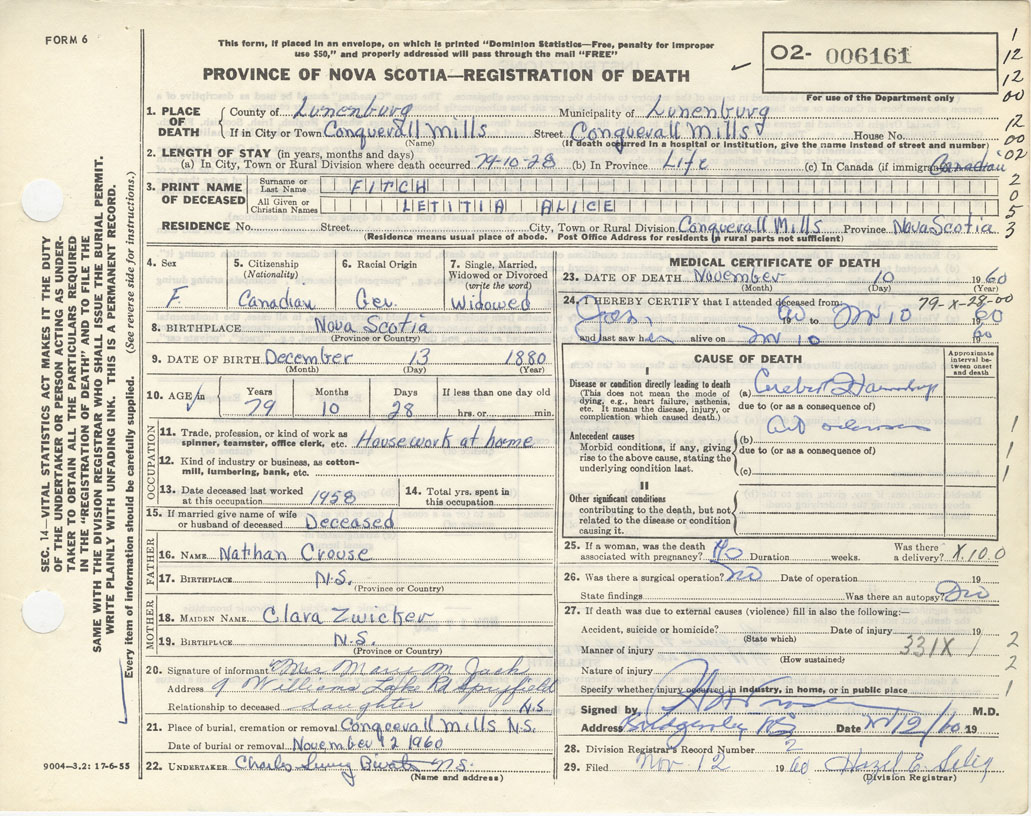 FORM 6
This form, if placed in an envelope, on which is printed "Dominion Statistics—Free, penalty for improper
use $50," and properly addressed will pass through the mail "FREE"
PROVINCE OF NOVA SCOTIA—REGISTRATION OF DEATH
02- 006161
For use of the Department only
1
12
12
00
12
00
02
2
0
5
3
SEC. 14—VITAL STATISTICS ACT MAKES IT THE DUTY
OF THE UNDERTAKER OR PERSON ACTING AS UNDER-
TAKER TO OBTAIN ALL THE PARTICULARS REQUIRED
IN THE "REGISTRATION OF DEATH" AND TO FILE THE
SAME WITH THE DIVISION REGISTRAR WHO SHALL ISSUE THE BURIAL PERMIT.
WRITE PLAINLY WITH UNFADING INK. THIS IS A PERMANENT RECORD.
Every item of information should be carefully supplied. (See reverse side for instructions.)
1. PLACE OF DEATH County of Lunenburg Municipality of Lunenburg
If in City or Town Conquerall Mills Street Conquerall Mills House No.
(Name) (If death occurred in a hospital or institution, give the name instead of street and number)
2. LENGTH OF STAY (in years, months and days)
(a) In City, Town or Rural Division where death occurred 79-10-28 (b) In Province Life (c) In Canada (if immigrant) Canadian
3. PRINT NAME OF DECEASED Surname or Last Name FITCH
All Given or Christian Names LETITIA ALICE
RESIDENCE No. Street City, Town or Rural Division Conquerall Mills Province Nova Scotia
(Residence means usual place of abode. Post Office Address for residents in rural parts not sufficient)
4. Sex F
5. Citizenship (Nationality) Canadian
6. Racial Origin Ger.
7. Single, Married, Widowed or Divorced (write the word) Widowed
8. BIRTHPLACE Nova Scotia
(Province or Country)
9. DATE OF BIRTH December 13 1880
(Month) (Day) (Year)
10. AGE in Years 79 Months 10 Days 28 If less than one day old hrs. or min.
OCCUPATION
11. Trade, profession, or kind of work as spinner, teamster, office clerk, etc. Housework at home
12. Kind of industry or business, as cotton-mill, lumbering, bank, etc.
13. Date deceased last worked at this occupation 1958
14. Total yrs. spent in this occupation
15. If married give name of wife or husband of deceased Deceased
FATHER
16. NAME Nathan Crouse
17. BIRTHPLACE N.S.
(Province or Country)
MOTHER
18. MAIDEN NAME Clara Zwicker
19. BIRTHPLACE N.S.
(Province or Country)
20. Signature of informant Mrs M. Jack
Address 9 Williams Lake Rd Spryfield
Relationship to deceased daughter N.S
21. Place of burial, cremation or removal Conquerall Mills N.S.
Date of burial or removal November 12 1960
22. UNDERTAKER Charles N.S.
(Name and address)
9004-3.2: 17-6-55
MEDICAL CERTIFICATE OF DEATH
23. DATE OF DEATH November 10 1960
(Month) (Day) (Year)
79-X-28-00
24. I HEREBY CERTIFY that I attended deceased from
Jan. 1960 to Nov 10 1960
and last saw her alive on Nov 10 1960
CAUSE OF DEATH
Approximate interval between onset and death
I
Disease or condition directly leading to death
(This does not mean the mode of dying, e.g., heart failure, asthenia, etc. It means the disease, injury, or complication which caused death.)
(a) Cerebral
due to (or as a consequence of)
Antecedent causes
Morbid conditions, if any, giving rise to the above cause, stating the underlying condition last.
(b)
due to (or as a consequence of)
(c)
1
1
1
II
Other significant conditions
contributing to the death, but not related to the disease or condition causing it.
25. If a woman, was the death associated with pregnancy? No Duration weeks. Was there a delivery? X.10.0
26. Was there a surgical operation? no Date of operation 19
State findings Was there an autopsy? no
27. If death was due to external causes (violence) fill in also the following:—
Accident, suicide or homicide? Date of injury 19
(State which)
Manner of injury 331X
(How sustained)
Nature of injury
Specify whether injury occurred in industry, in home, or in public place
2
2
1
Signed by M.D.
Address Bridgewater NS Date Nov 12/60 19
28. Division Registrar's Record Number 2
29. Filed Nov 12 1960 Hazel E.
(Division Registrar)